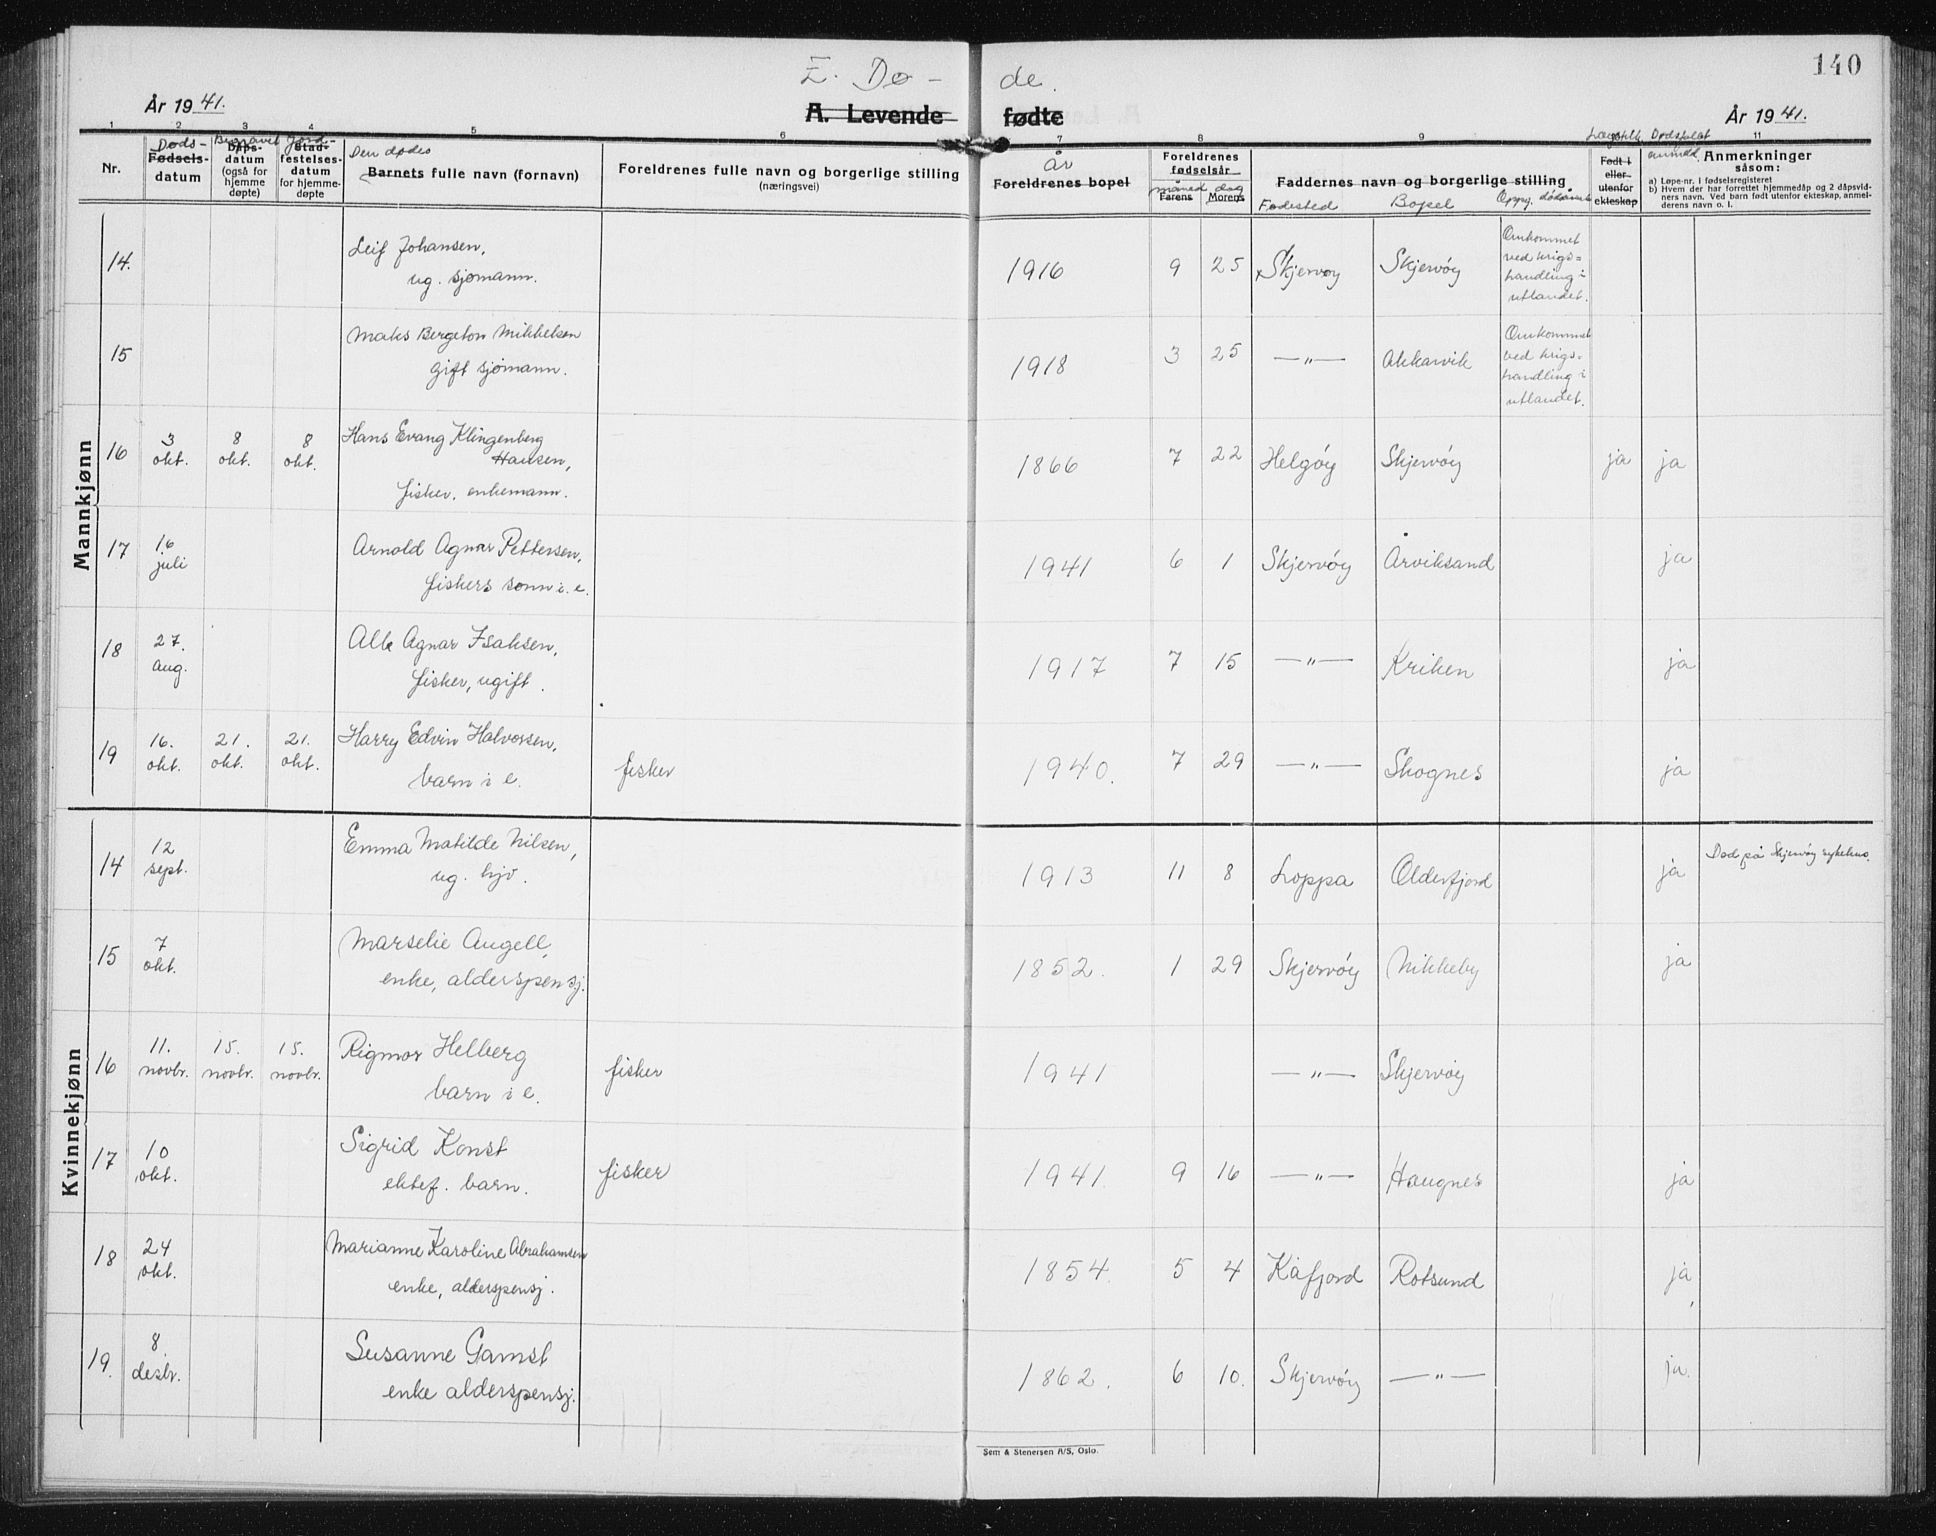 140
E. Dø - de.
År 1941.
A. Levende fødte
År 1941.
1 2 3 4 5 6 7 8 9 11
Nr.
Døds-
Fødsels-
datum
Begravet
Dåps-
datum
(også for
hjemme
døpte)
Jord-
Stad-
festelses-
datum
for hjemme-
døpte
Den dødes
Barnets fulle navn (fornavn)
Foreldrenes fulle navn og borgerlige stilling
(næringsvei)
år
Foreldrenes bopel
Foreldrenes
fødselsår
måned dag
Farens Morens
Faddernes navn og borgerlige stilling
Fødested Bopel Oppg.
Født i
eller
utenfor
ekteskap
Dødsfallet
anmeld.
Anmerkninger
såsom:
a) Løpe-nr. i fødselsregisteret
b) Hvem der har forrettet hjemmedåp og 2 dåpsvid-
ners navn. Ved barn født utenfor ekteskap, anmel-
derens navn o. l.
Mannkjønn
14. Leif Johansen, 1916 9 25 Skjervøy Skjervøy Omkommet
ug. sjømann. ved krigs=
handling i
utlandet.
15 Maks Bergeton Mikkelsen 1918 3 25 —„— Akkarvik Omkommet
gift sjømann. ved krigs=
handling i
utlandet.
16 3 okt. 8 okt. 8 okt. Hans Evang Klingenberg
Hansen, 1866 7 22 Helgøy Skjervøy ja ja
fisker, enkemann.
17 16 juli Arnold Agnar Pettersen, 1941 6 1 Skjervøy Årviksand ja
fiskers sønn i. e.
18 27. aug. Alb Agnar Isaksen, 1917 7 15 —„— Kriken ja
fisker, ugift.
19 16. okt. 21. okt. 21. okt. Harry Edvin Halvorsen, fisker 1940. 7 29 —„— Skognes ja
barn i e.
Kvinnekjønn
14 12 sept. Emma Matilde Nilsen, 1913 11 8 Loppa Olderfjord ja Død på Skjervøy sykehus.
ug. hjv.
15 7 okt. Marselie Angell, 1852. 1 29 Skjervøy Nikkeby ja
enke, alderspensj.
16 11. novbr. 15. novbr. 15. novbr. Rigmor Helberg fisker 1941 —„— Skjervøy
barn i e.
17 10 okt. Sigrid Konst fisker 1941. 9 16 —„— Haugnes ja
ektef. barn.
18 24 okt. Marianne Karoline Abrahamsen 1854. 5 4 Kåfjord Rotsund ja
enke, alderspensj.
19. 8. desbr. Susanne Gamst 1862. 6 10. Skjervøy —„— ja.
enke alderspensj.
Sem & Stenersen A/S, Oslo.